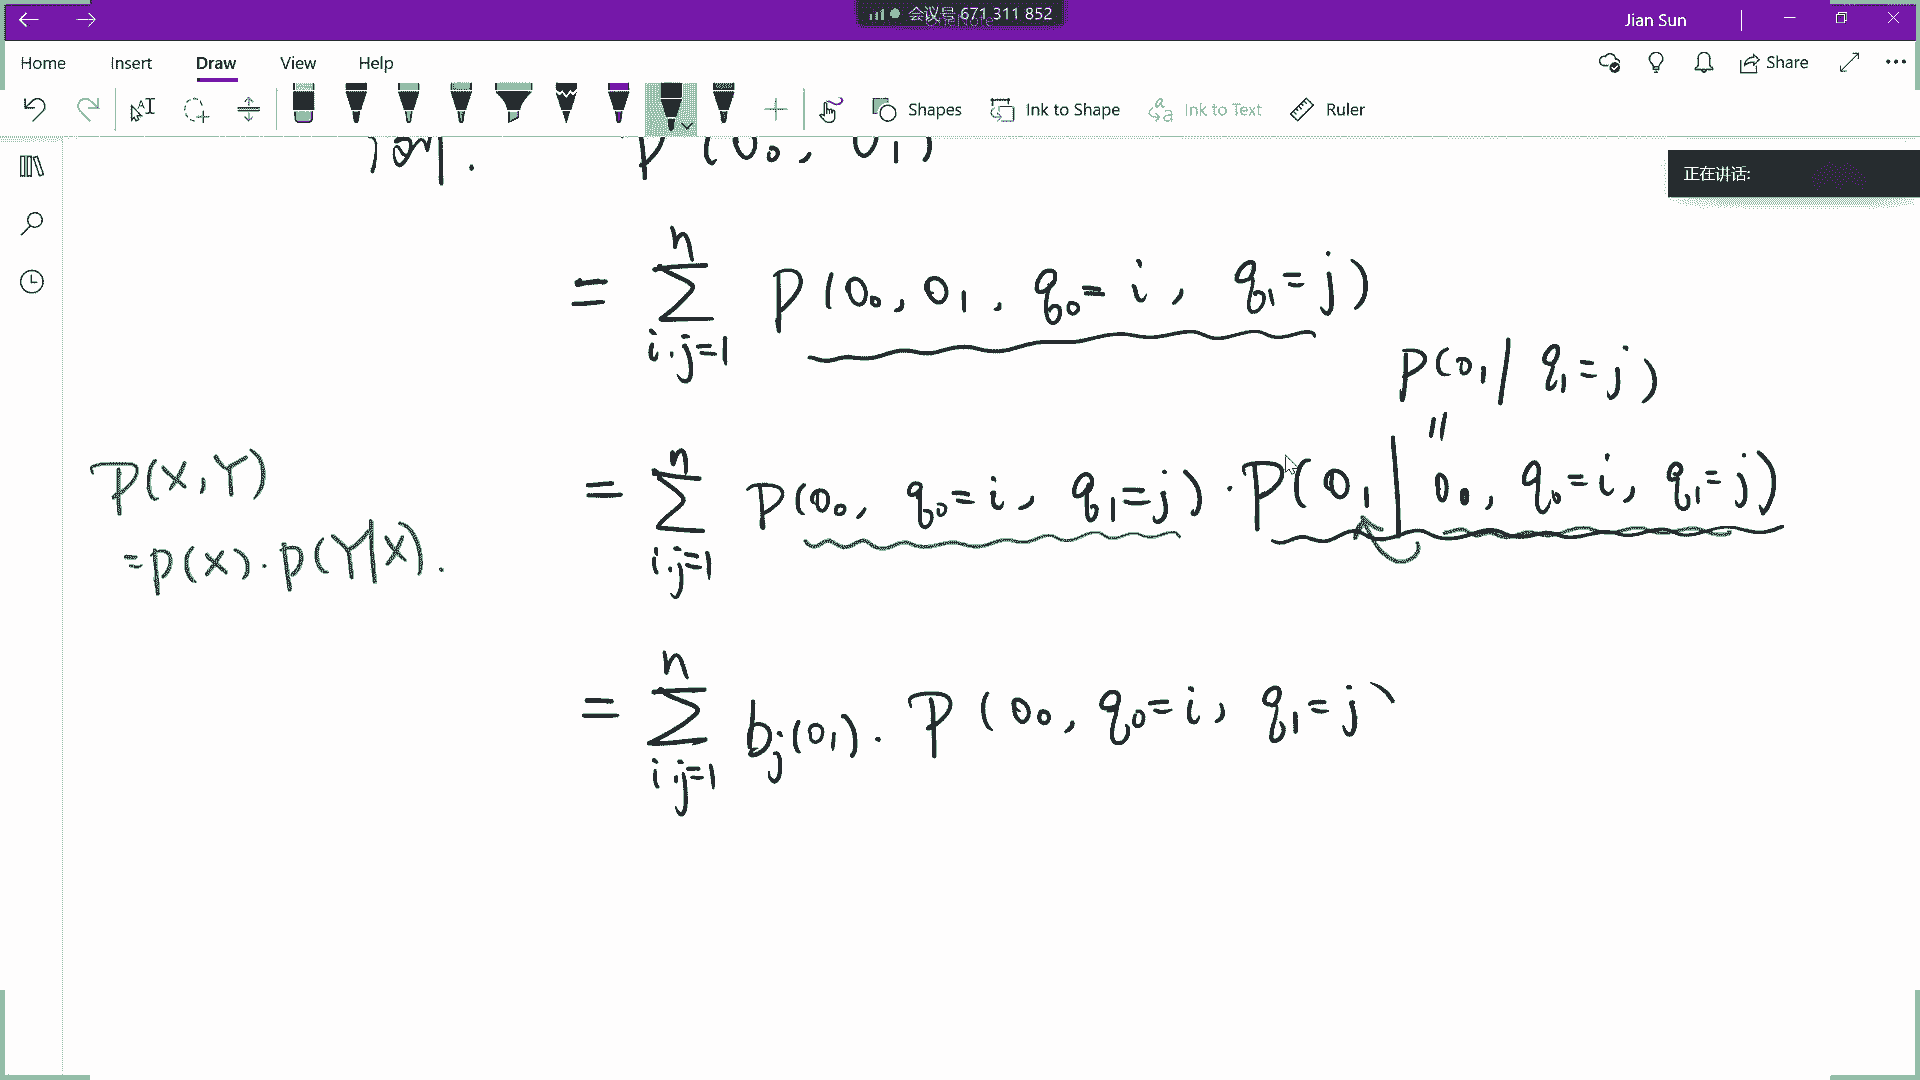 会议号 671 311 852
Jian Sun
Home Insert Draw View Help
Share
Shapes Ink to Shape Ink to Text Ruler
正在讲话:
P(O₀, O₁)
= ∑ⁿᵢ.ⱼ₌₁ P(O₀, O₁, q₀=i, q₁=j)
P(O₁|q₁=j)
=
= ∑ⁿᵢ.ⱼ₌₁ P(O₀, q₀=i, q₁=j)·P(O₁|O₀, q₀=i, q₁=j)
P(X,Y)
=P(X)·P(Y|X).
= ∑ⁿᵢ.ⱼ₌₁ bⱼ(O₁)·P(O₀, q₀=i, q₁=j)